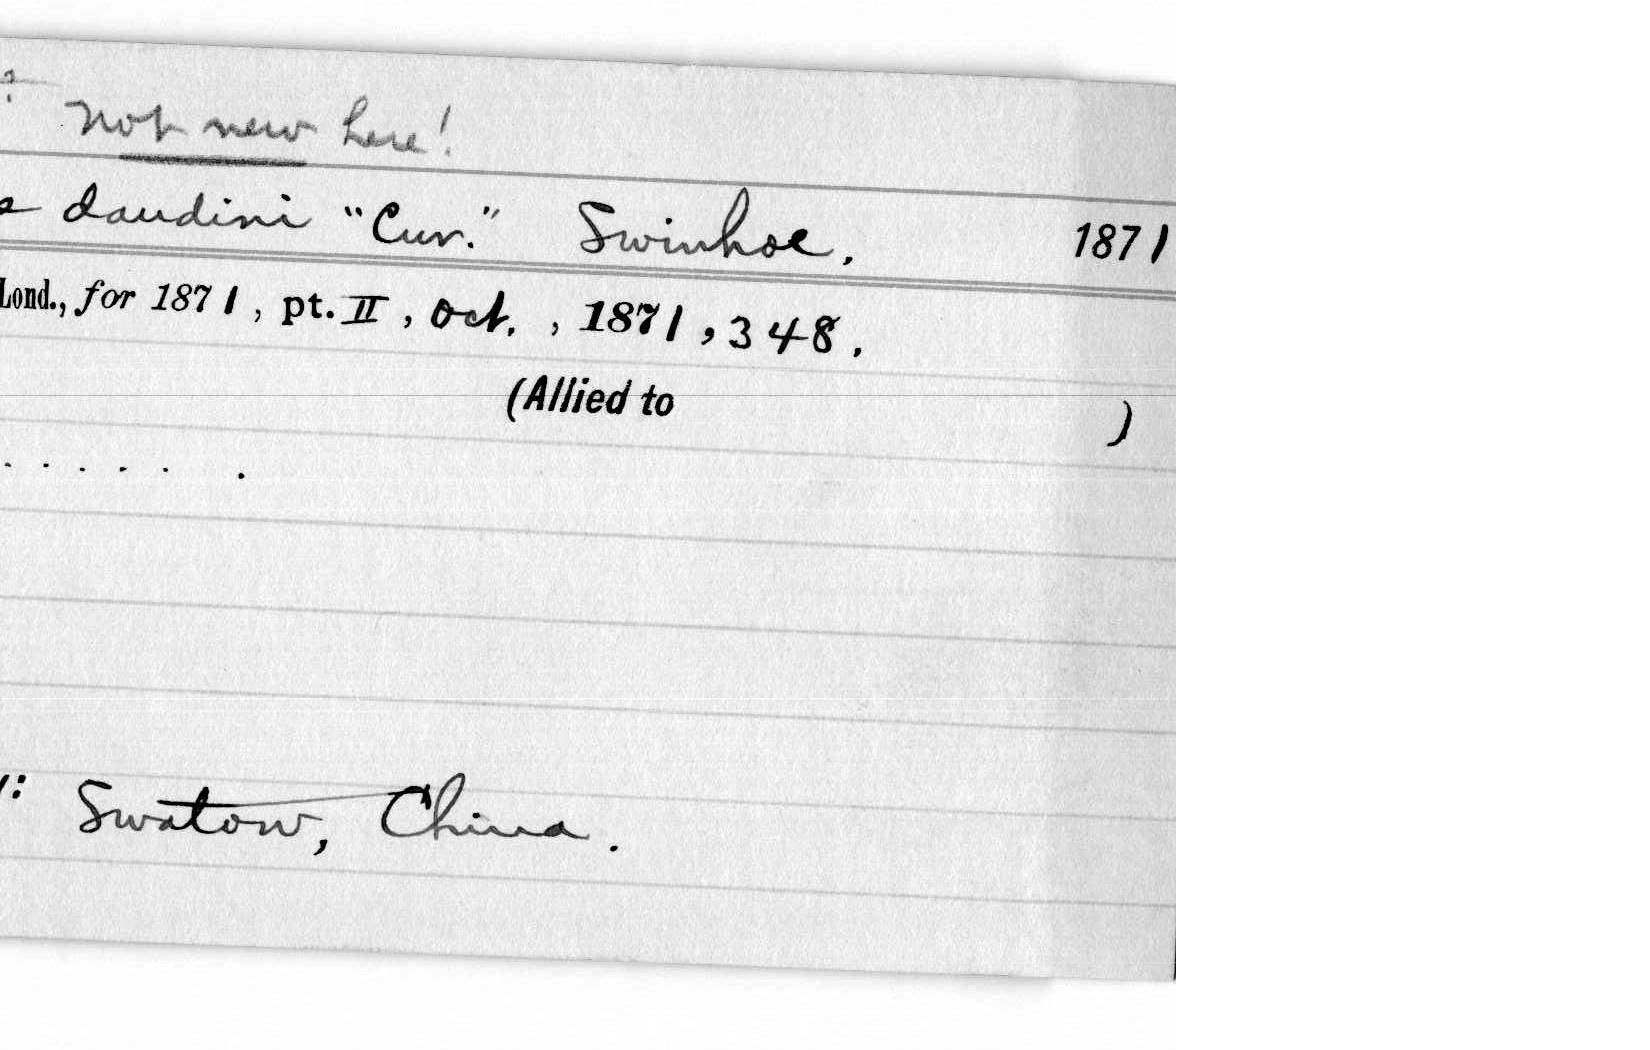 ? Not new here!
s daudini "Cuv." Swinhoe. 1871
Lond., for 1871, pt. II, Oct., 1871, 348.
(Allied to )
. . . . . .
y: Swatow, China.